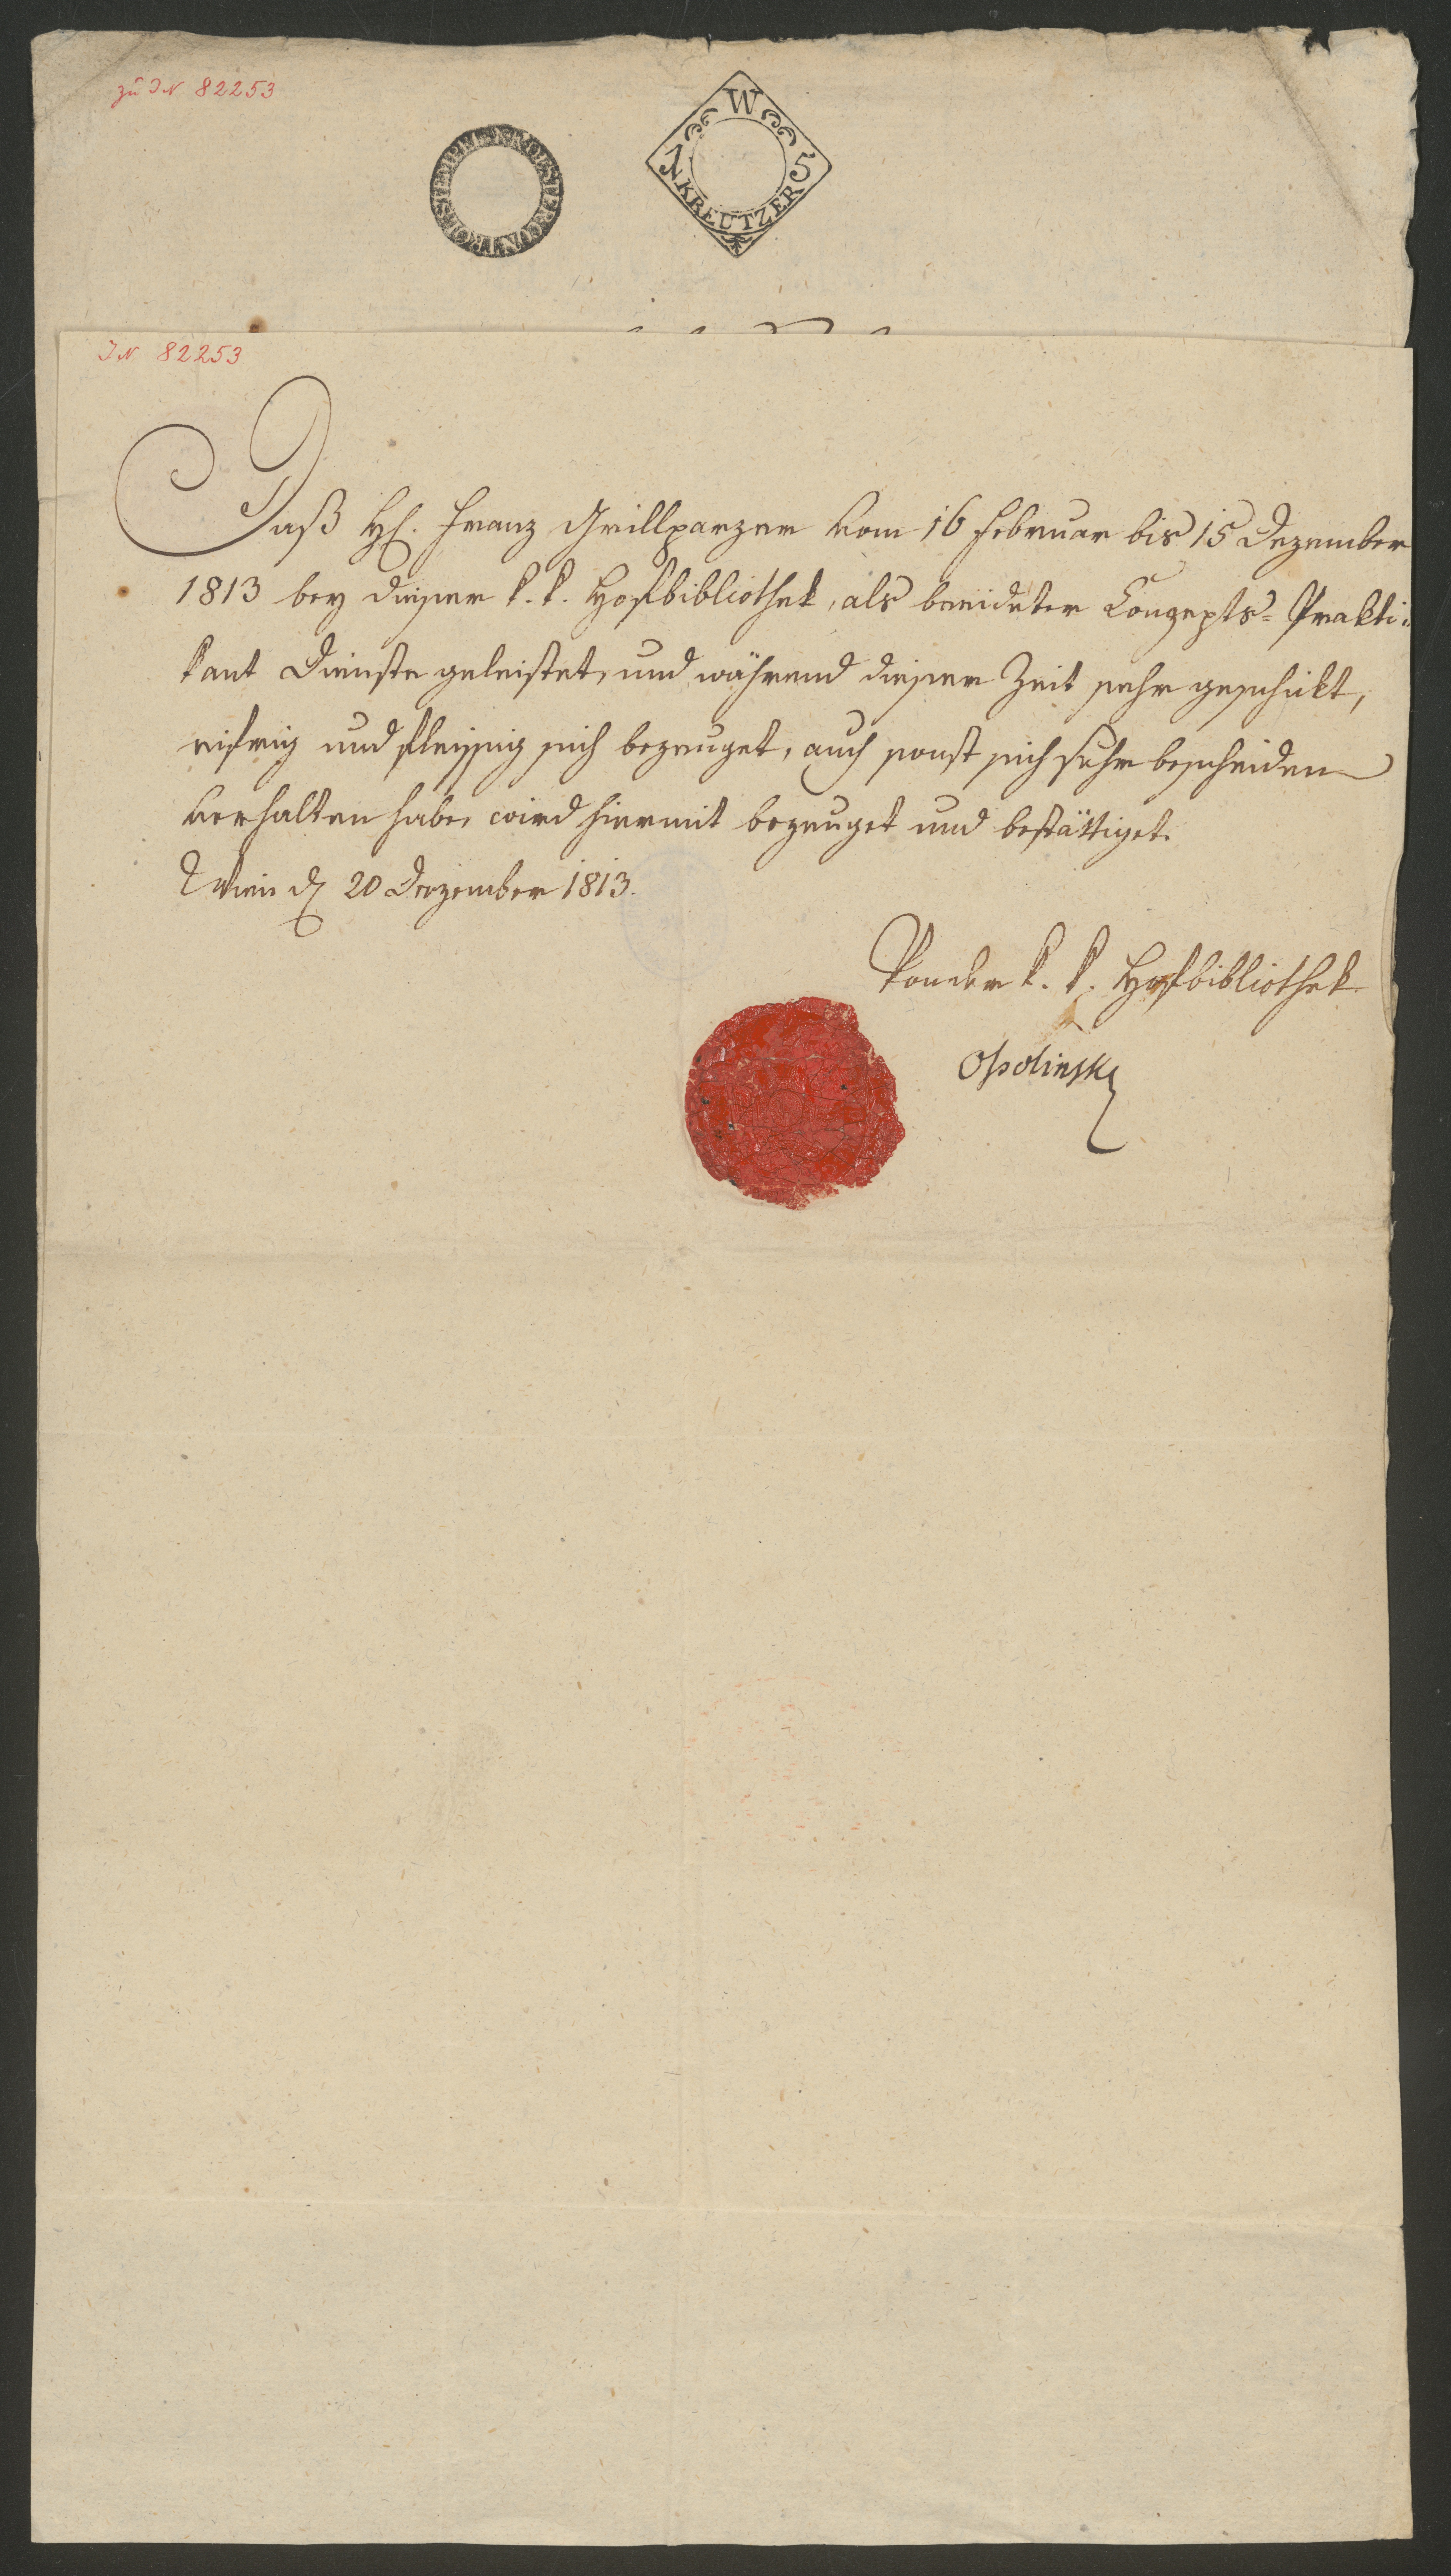 zu IN 82253
W
15
KREUTZER
IN 82253
Daß H. Franz Grillparzer vom 16 Februar bis 15 Dezember
1813 bey dieser k. k. Hofbibliothek, als beeideter Conzepts= Prakti=
kant Dienste geleistet, und während dieser Zeit sehr geschikt,
eifrig und fleissig sich bezeuget, auch sonst sich sehr bescheiden
verhalten habe, wird hiermit bezeuget und bestättiget.
Wien d. 20 Dezember 1813.
Von der k. k. Hofbibliothek
Ossolinski